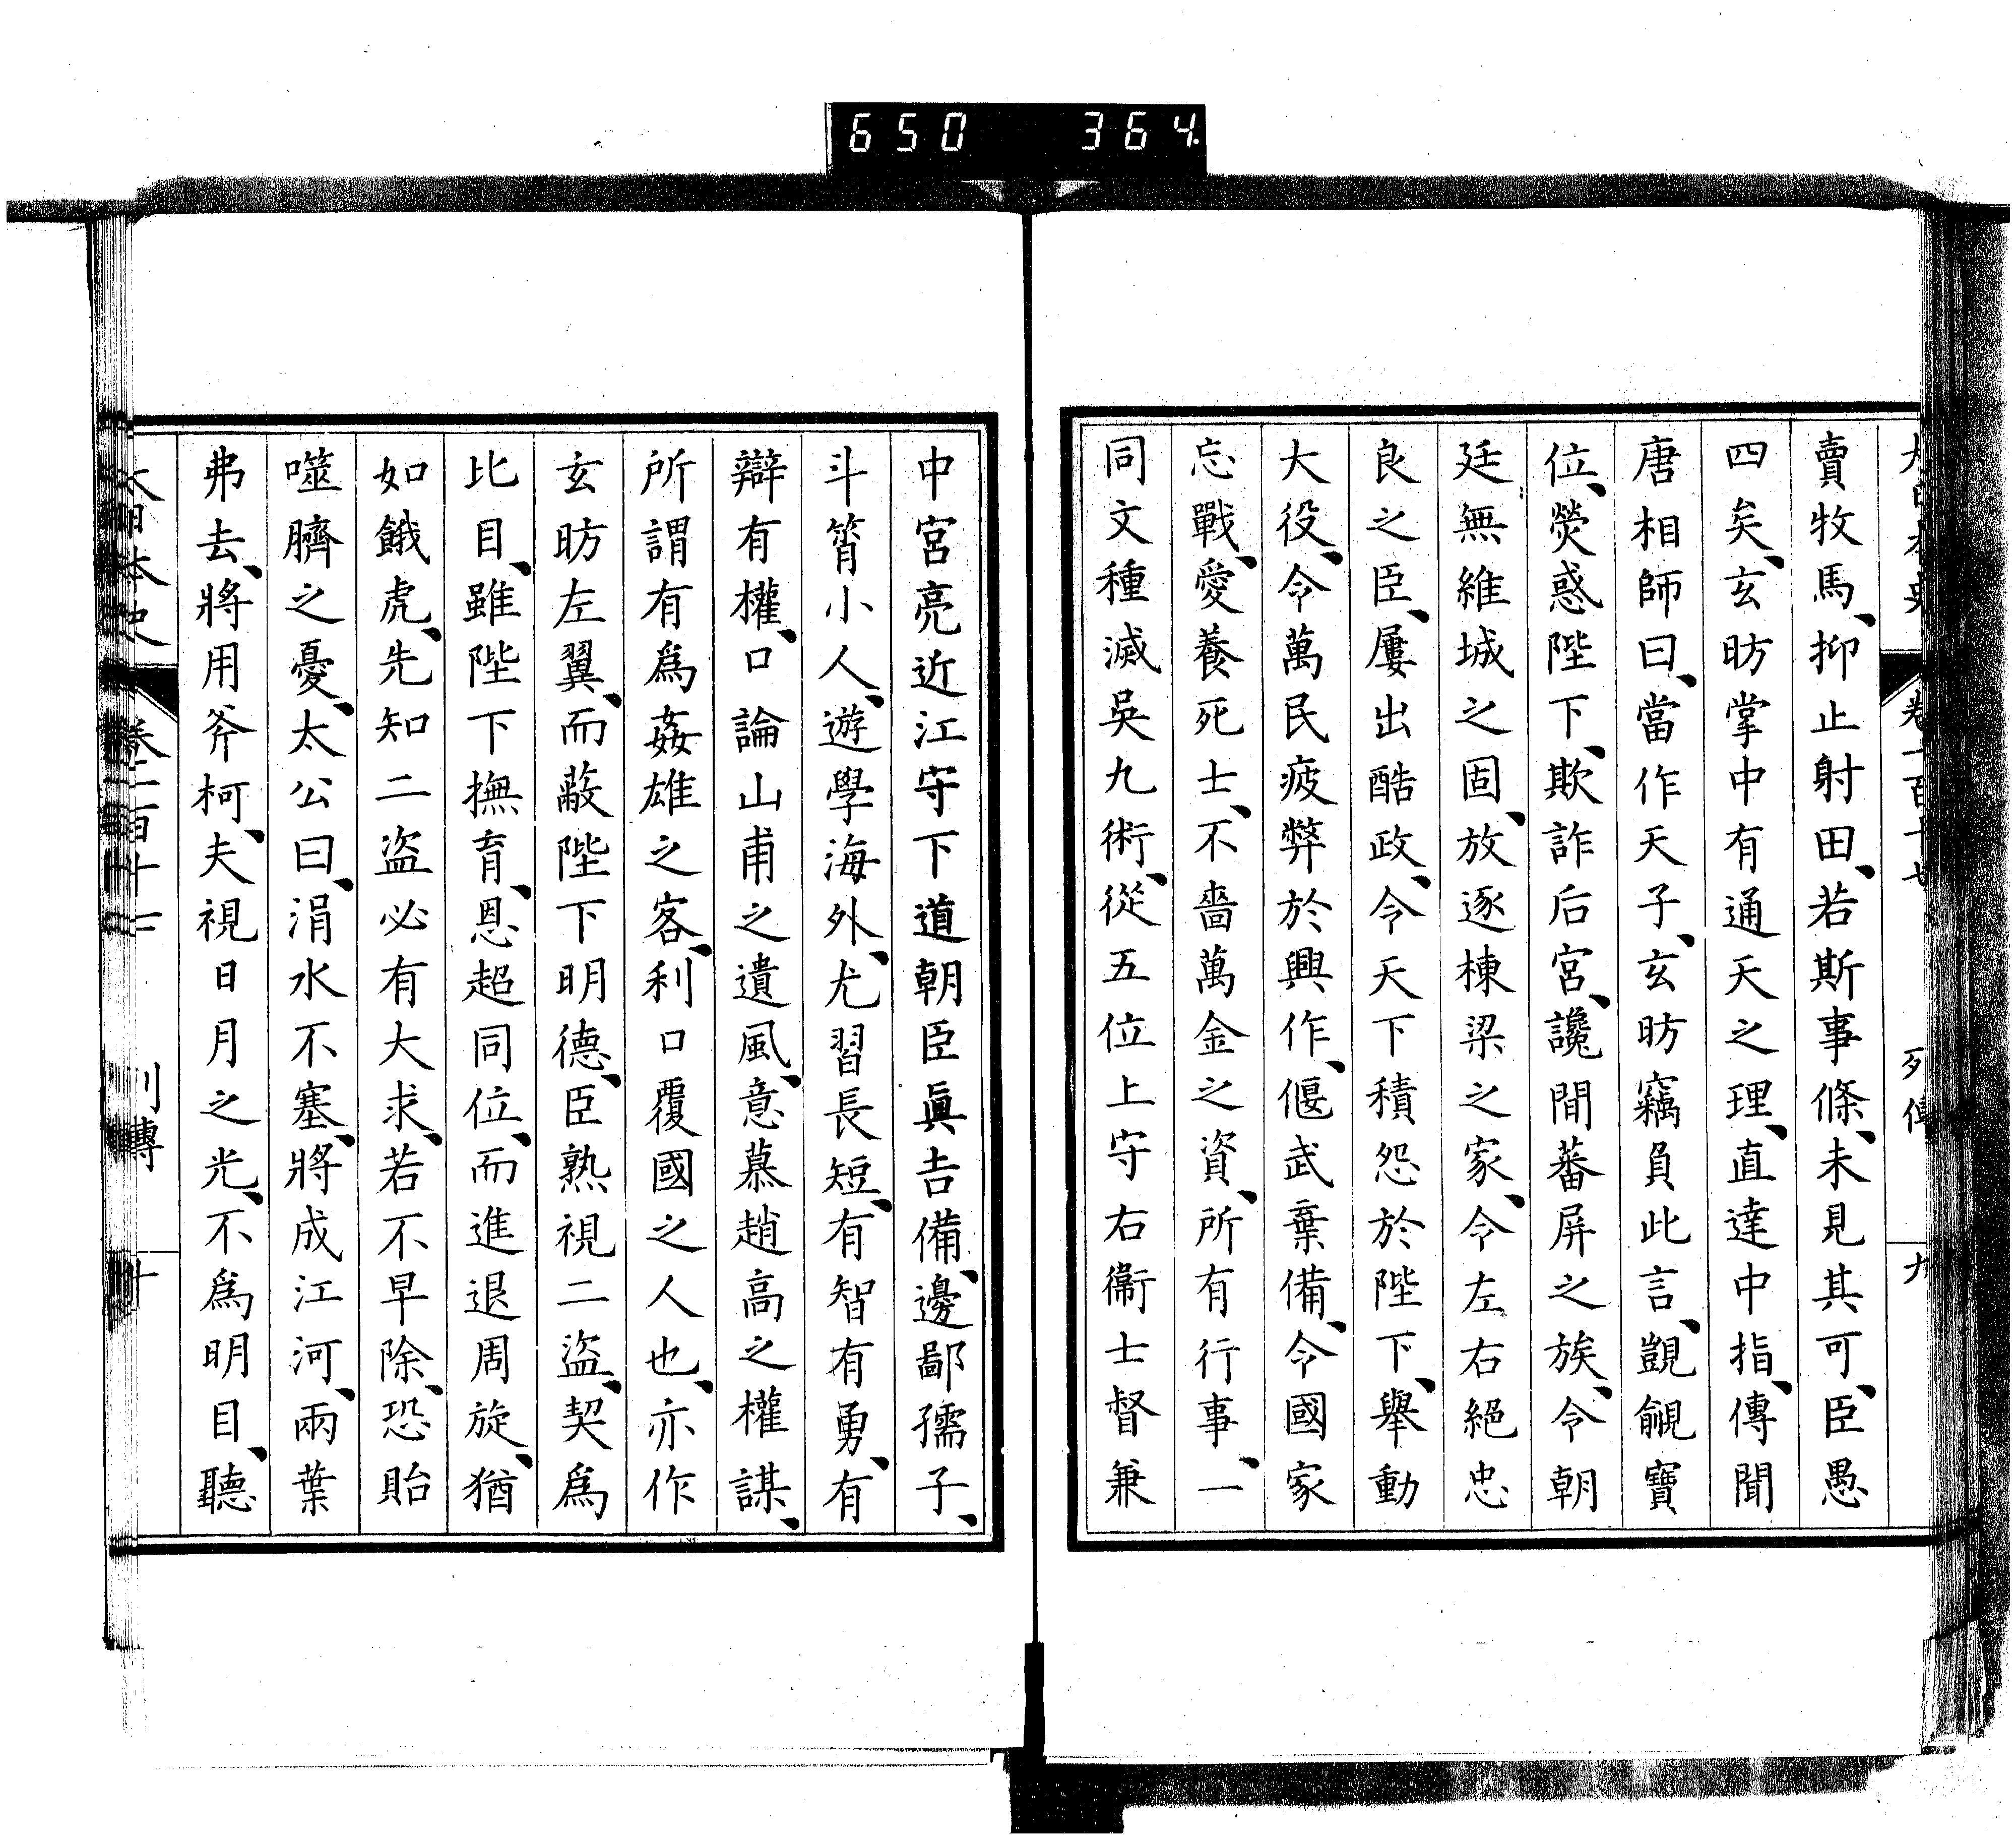 650 364
大日本史 卷一百十七 列傳 九
賣牧馬、抑止射田、若斯事條、未見其可、臣愚
四矣、玄昉掌中有通天之理、直達中指、傳聞
唐相師曰、當作天子、玄昉竊負此言、覬覦寶
位、熒惑陛下、欺詐后宮、讒間蕃屏之族、令朝
廷無維城之固、放逐棟梁之家、令左右絕忠
良之臣、屢出酷政、令天下積怨於陛下、舉動
大役、令萬民疲弊於興作、偃武棄備、令國家
忘戰、愛養死士、不嗇萬金之資、所有行事、一
同文種滅吳九術、從五位上守右衞士督兼
中宮亮近江守下道朝臣眞吉備、邊鄙孺子、
斗筲小人、遊學海外、尤習長短、有智有勇、有
辯有權、口論山甫之遺風、意慕趙高之權謀、
所謂有爲姦雄之客、利口覆國之人也、亦作
玄昉左翼、而蔽陛下明德、臣熟視二盜、契爲
比目、雖陛下撫育、恩超同位、而進退周旋、猶
如餓虎、先知二盜必有大求、若不早除、恐貽
噬臍之憂、太公曰、涓水不塞、將成江河、兩葉
弗去、將用斧柯、夫視日月之光、不爲明目、聽
大日本史 卷一百十七 列傳 十